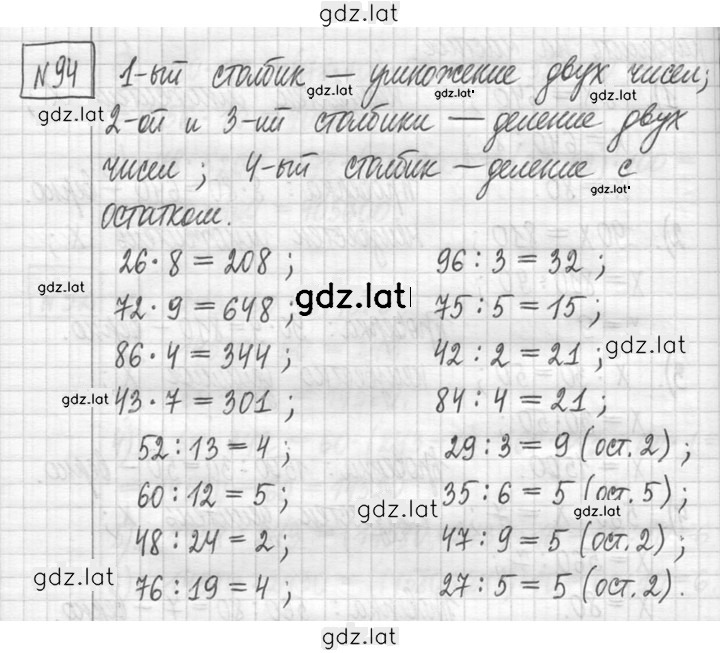 gdz.lat
№94 1-ый столбик — умножение двух чисел;
gdz.lat gdz.lat gdz.lat
gdz.lat 2-ой и 3-ий столбики — деление двух
чисел; 4-ый столбик — деление с
gdz.lat
остатком.
26·8=208; 96:3=32;
gdz.lat
72·9=648; gdz.lat 75:5=15;
86·4=344; 42:2=21; gdz.lat
gdz.lat 43·7=301; 84:4=21;
52:13=4; 29:3=9 (ост.2);
60:12=5; 35:6=5 (ост.5);
gdz.lat gdz.lat
48:24=2; 47:9=5 (ост.2);
gdz.lat 76:19=4; 27:5=5 (ост.2).
gdz.lat